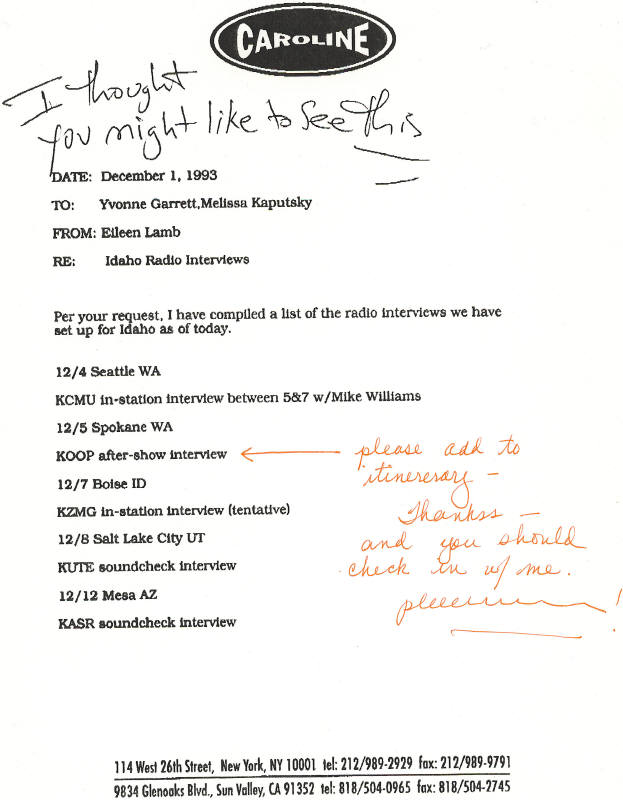 CAROLINE
I thought
you might like to see This
DATE: December 1, 1993
TO: Yvonne Garrett,Melissa Kaputsky
FROM: Eileen Lamb
RE: Idaho Radio Interviews
Per your request, I have compiled a list of the radio interviews we have
set up for Idaho as of today.
12/4 Seattle WA
KCMU in-station interview between 5&7 w/Mike Williams
12/5 Spokane WA
KOOP after-show interview
12/7 Boise ID
KZMG in-station interview (tentative)
12/8 Salt Lake City UT
KUTE soundcheck interview
12/12 Mesa AZ
KASR soundcheck interview
please add to
itineresary –
Thankss –
and you should
check in w/ me.
114 West 26th Street, New York, NY 10001 tel: 212/989-2929 fax: 212/989-9791
9834 Glenoaks Blvd., Sun Valley, CA 91352 tel: 818/504-0965 fax: 818/504-2745